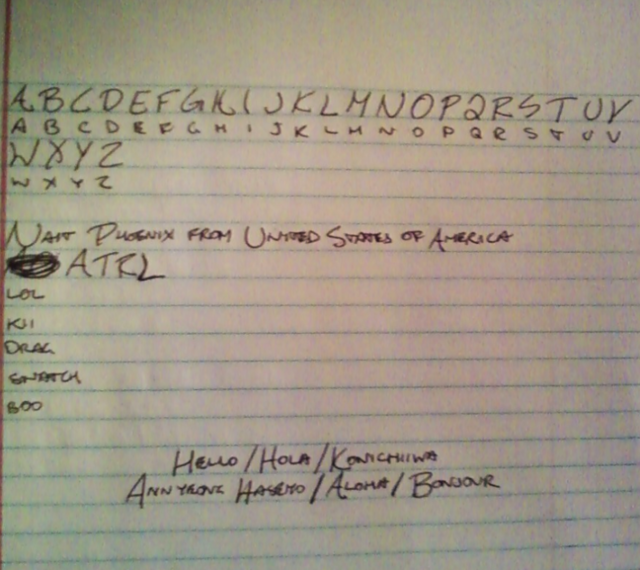 ABCDEFGHIJKLMNOPQRSTUV
A B C D E F G H I J K L M N O P Q R S T U V
WXYZ
W X Y Z
NAIT PHOENIX FROM UNITED STATES OF AMERICA
ATRL
LOL
KII
DRAG
SNATCH
BOO
HELLO/HOLA/KONICHIIWA
ANNYEONG HASEYO/ALOHA/BONJOUR